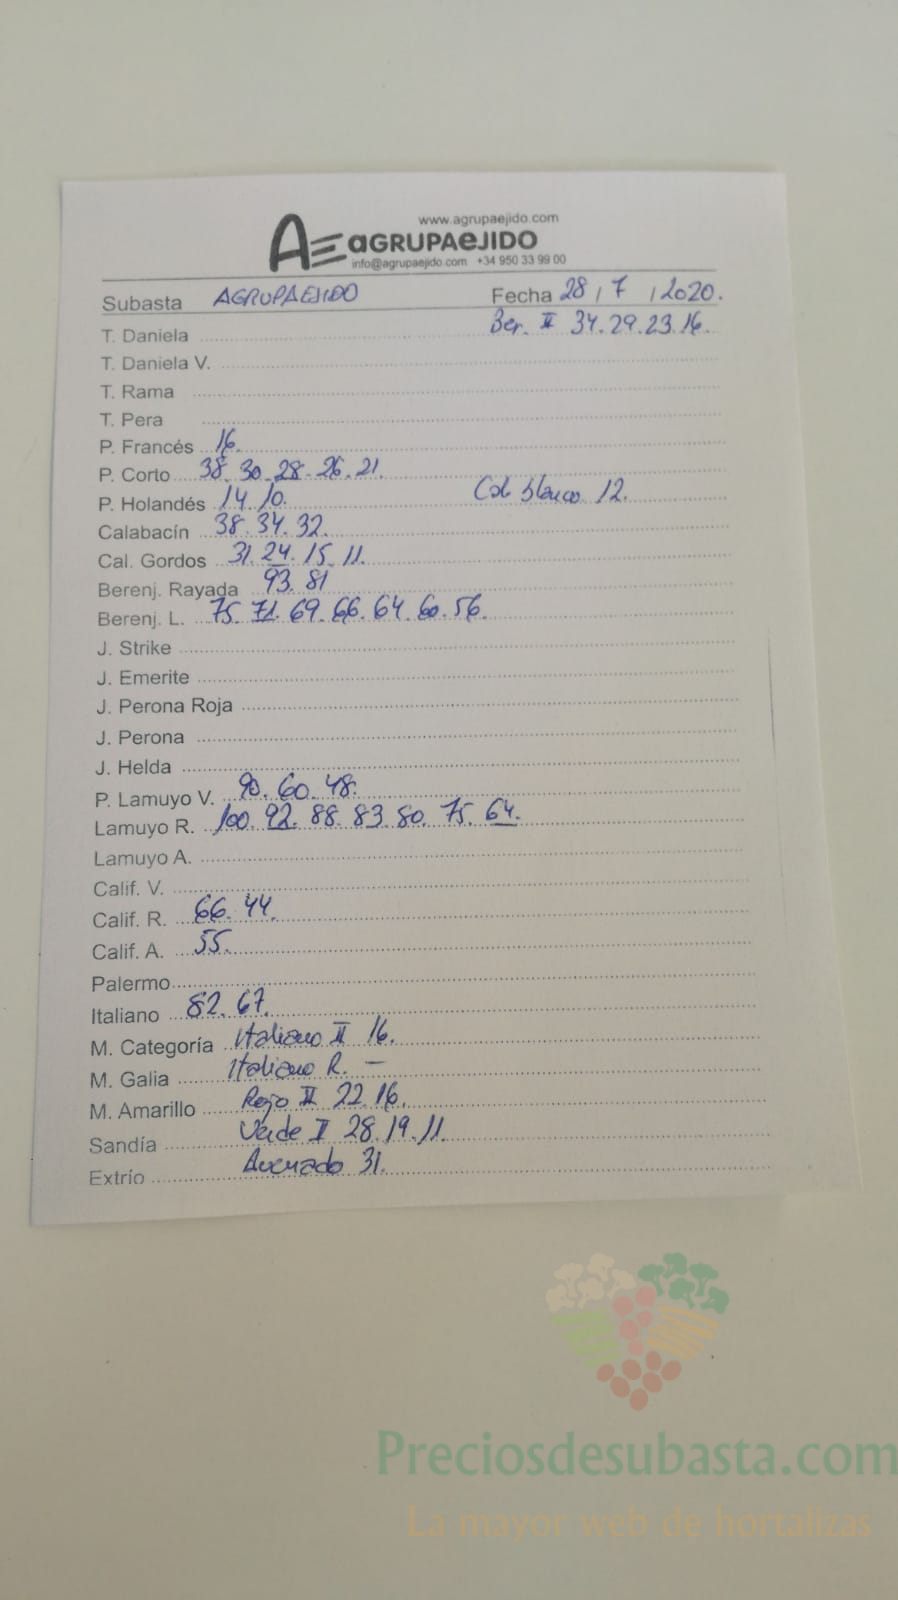 www.agrupaejido.com
AE AGRUPAEJIDO
info@agrupaejido.com +34 950 33 99 00
Subasta AGRUPAEJIDO Fecha 28 / 7 / 2020.
Ber. II 34. 29. 23. 16.
T. Daniela
T. Daniela V.
T. Rama
T. Pera
P. Francés 16.
P. Corto 38. 30. 28. 26. 21.
P. Holandés 14. 10. Cal blanco 12.
Calabacín 38. 34. 32.
Cal. Gordos 31. 24. 15. 11.
Berenj. Rayada 93. 81
Berenj. L. 75. 71. 69. 66. 64. 60. 56.
J. Strike
J. Emerite
J. Perona Roja
J. Perona
J. Helda
P. Lamuyo V. 90. 60. 48.
Lamuyo R. 100. 92. 88. 83. 80. 75. 64.
Lamuyo A.
Calif. V.
Calif. R. 66. 44.
Calif. A. 55.
Palermo
Italiano 82. 67.
M. Categoría Italiano II 16.
M. Galia Italiano R. —
M. Amarillo Rojo II 22. 16.
Sandía Verde II 28. 19. 11.
Extrío 31.
Preciosdesubasta.com
La mayor web de hortalizas